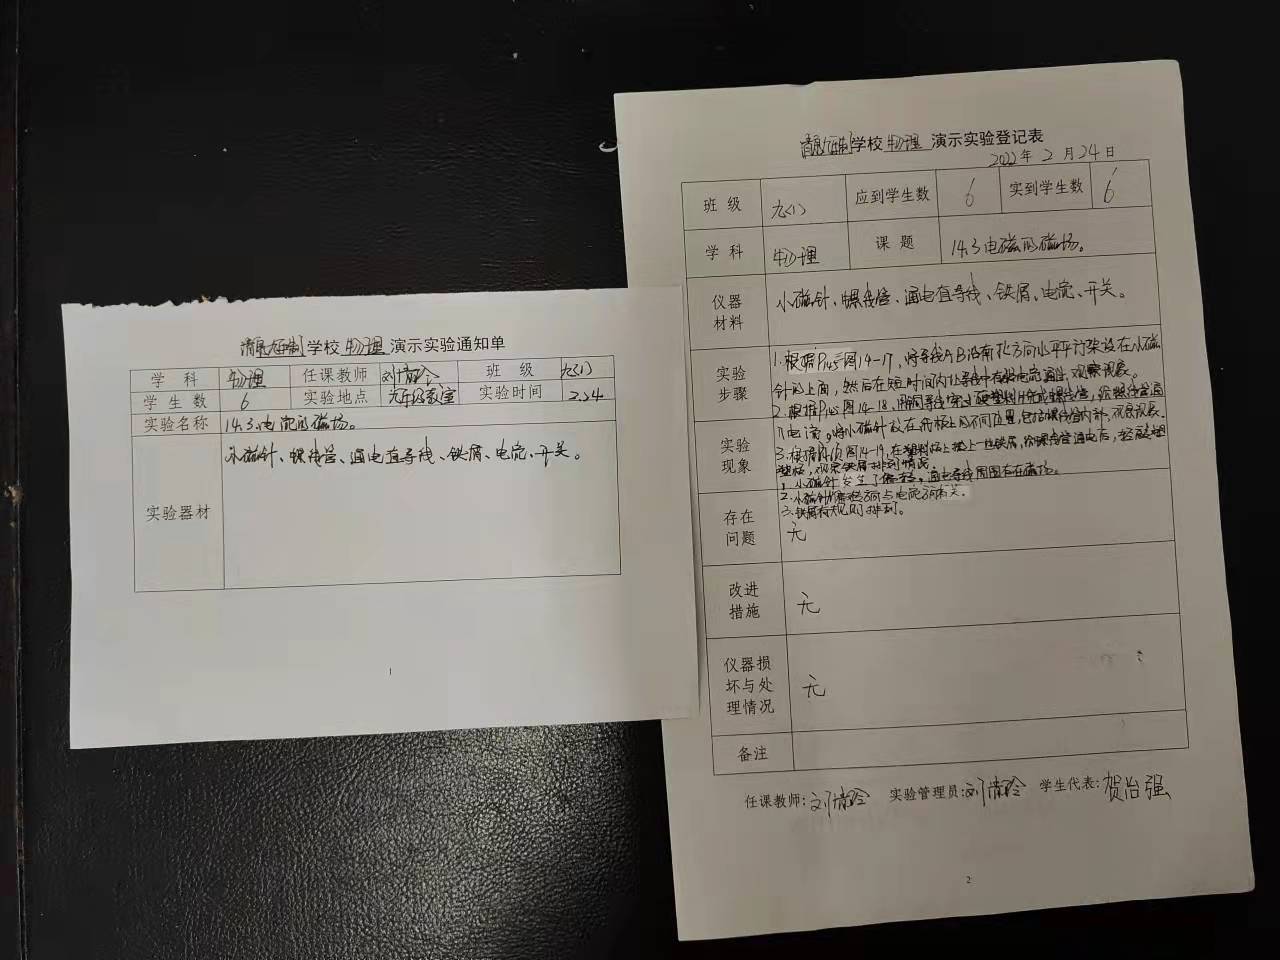 学校物理演示实验通知单
学科 物理 任课教师 班级 九(1)
学生数 6 实验地点 九年级教室 实验时间 2.24
实验名称 14.3.电流的磁场。
实验器材 小磁针、螺线管、通电直导线、铁屑、电流、开关。
1
学校物理 演示实验登记表
2022年2月24日
班级 九(1) 应到学生数 6 实到学生数 6
学科 物理 课题 14.3电磁的磁场。
仪器材料 小磁针、螺线管、通电直导线、铁屑、电流、开关。
实验步骤
1.根据P145图14-17,将导线AB沿南北方向水平架设在小磁
针的上面,然后在短时间内让导线中有较大电流通过,观察现象。
2.根据图14-18,用铜导线穿过硬塑料片做成螺线管,给螺线管通
入电流。将小磁针放在面板上的不同位置,包括螺线管内部,观察现象。
3.根据图14-19,在塑料板上撒上一些铁屑,给螺线管通电后,轻敲塑
料板,观察铁屑排列情况。
实验现象
1.小磁针发生了偏转。通电导线周围存在磁场。
2.小磁针偏转方向与电流方向有关。
3.铁屑有规则排列。
存在问题 无
改进措施 无
仪器损坏与处理情况 无
备注
任课教师: 实验管理员: 学生代表:贺治强
2